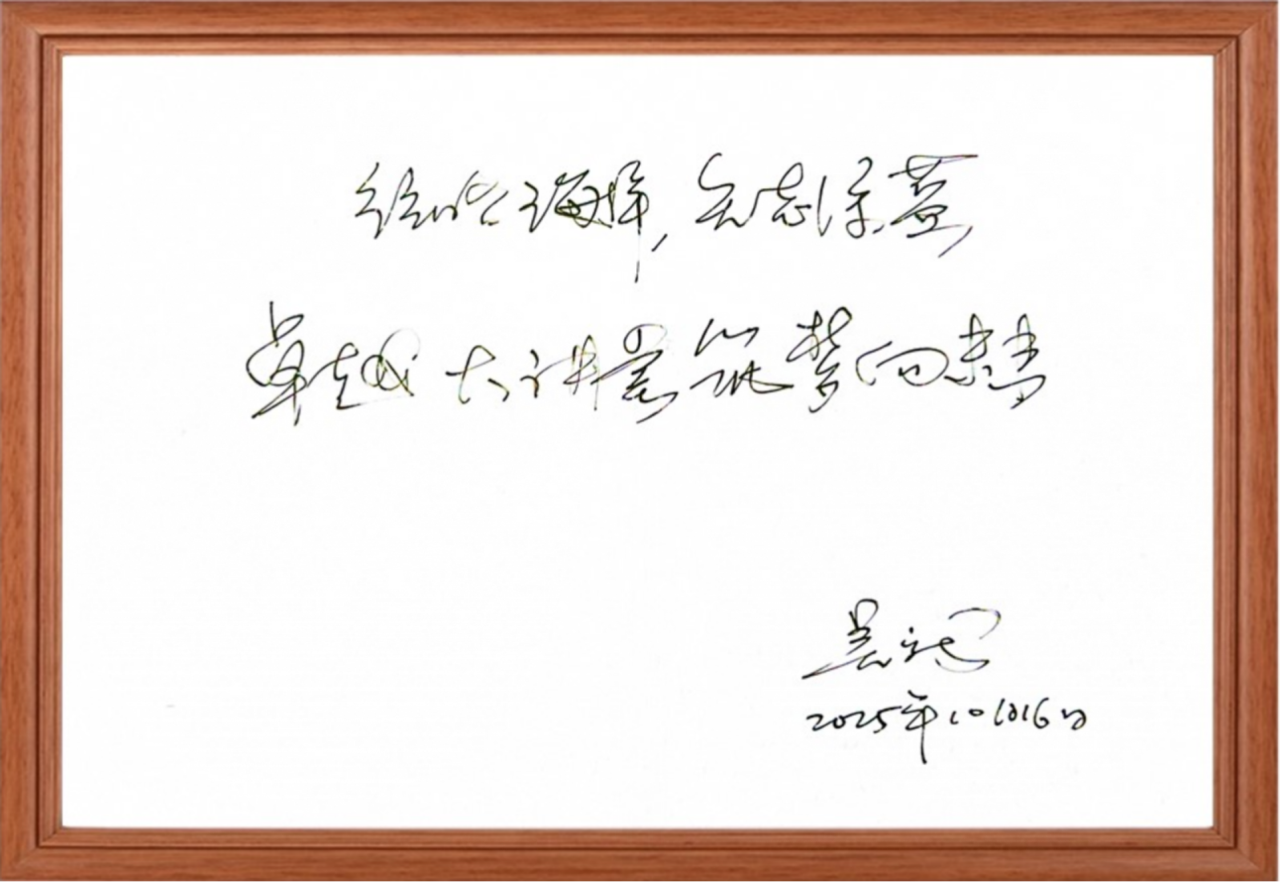 经略海洋,矢志深蓝
卓越大讲堂筑梦向未来
吴
2025年10月16日